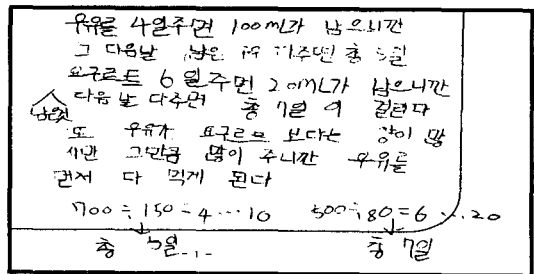 우유를 4일주면 100mL가 남으니깐
그 다음날 남은 거 마저주면 총 5일
요구르트 6일주면 20mL가 남으니깐
남은것
다음날 다주면 총 7일이 걸린다
또 우유가 요구르트 보다는 양이 많
지만 그만큼 많이 주니깐 우유를
먼저 다 먹게 된다
700÷150=4…10 500÷80=6…20
총 5일... 총 7일